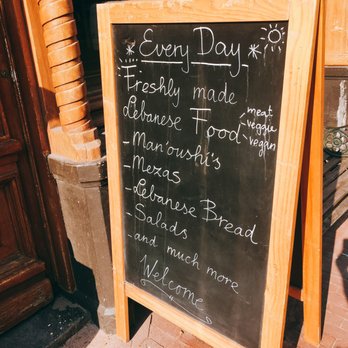 * Every Day *
Freshly made
Lebanese Food
meat
veggie
vegan
- Man'oushi's
- Mezas
- Lebanese Bread
- Salads
- and much more
Welcome